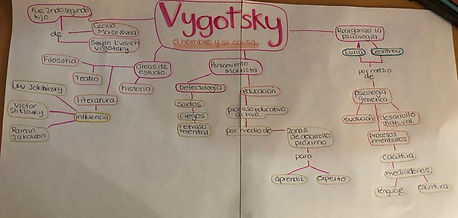 Vygotsky
el hombre y su causa
Fue 2ndo segundo
hijo
de
Cecilia
Semyon L'vovich
Vigotsky
Filosofía
Teatro
Literatura
Historia
áreas de
estudio
Lev Jakubinsky
Victor
Shklovsky
Roman
Jakobson
influencia
Pensamiento
marxista
Defectología
sordos
ciegos
retraso
mental
educación
proceso educativo
activo
por medio de
Zonas
de desarrollo
próximo
para
aprendiz
experto
Reorganizó la
psicología
Luria
Leontiev
por medio
de
Psicología
genetica
evolución
desarrollo
natural
Procesos
mentales
cultura
mediadores
lenguaje
escritura